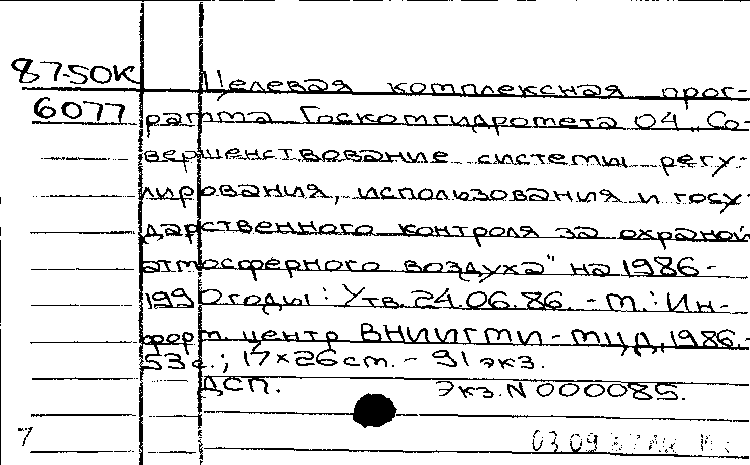 87-5ОК Целевая комплексная прог-
6077 рамма Госкомгидромета 04 „Со-
вершенствование системы регу-
лирования, использования и госу-
дарственного контроля за охраной
атмосферного воздуха" на 1986-
1990 годы: Утв. 24.06.86. - М.: Ин-
форм. центр ВНИИГМИ-МЦД, 1986.-
53 с.; 17×26 см. - 91 экз.
ДСП. Экз. N 000085.
7 03 09